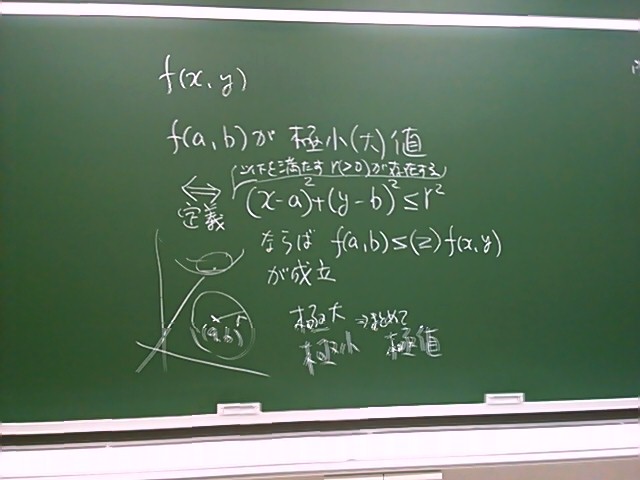 f(x, y)
f(a, b)が 極小(大)値
以下を満たす r(>0)が存在する
⇔ (x-a)²+(y-b)²≤r²
定義
ならば f(a,b)≤(≥)f(x,y)
が成立
r
(a,b)
極大 ⇒まとめて
極小 極値